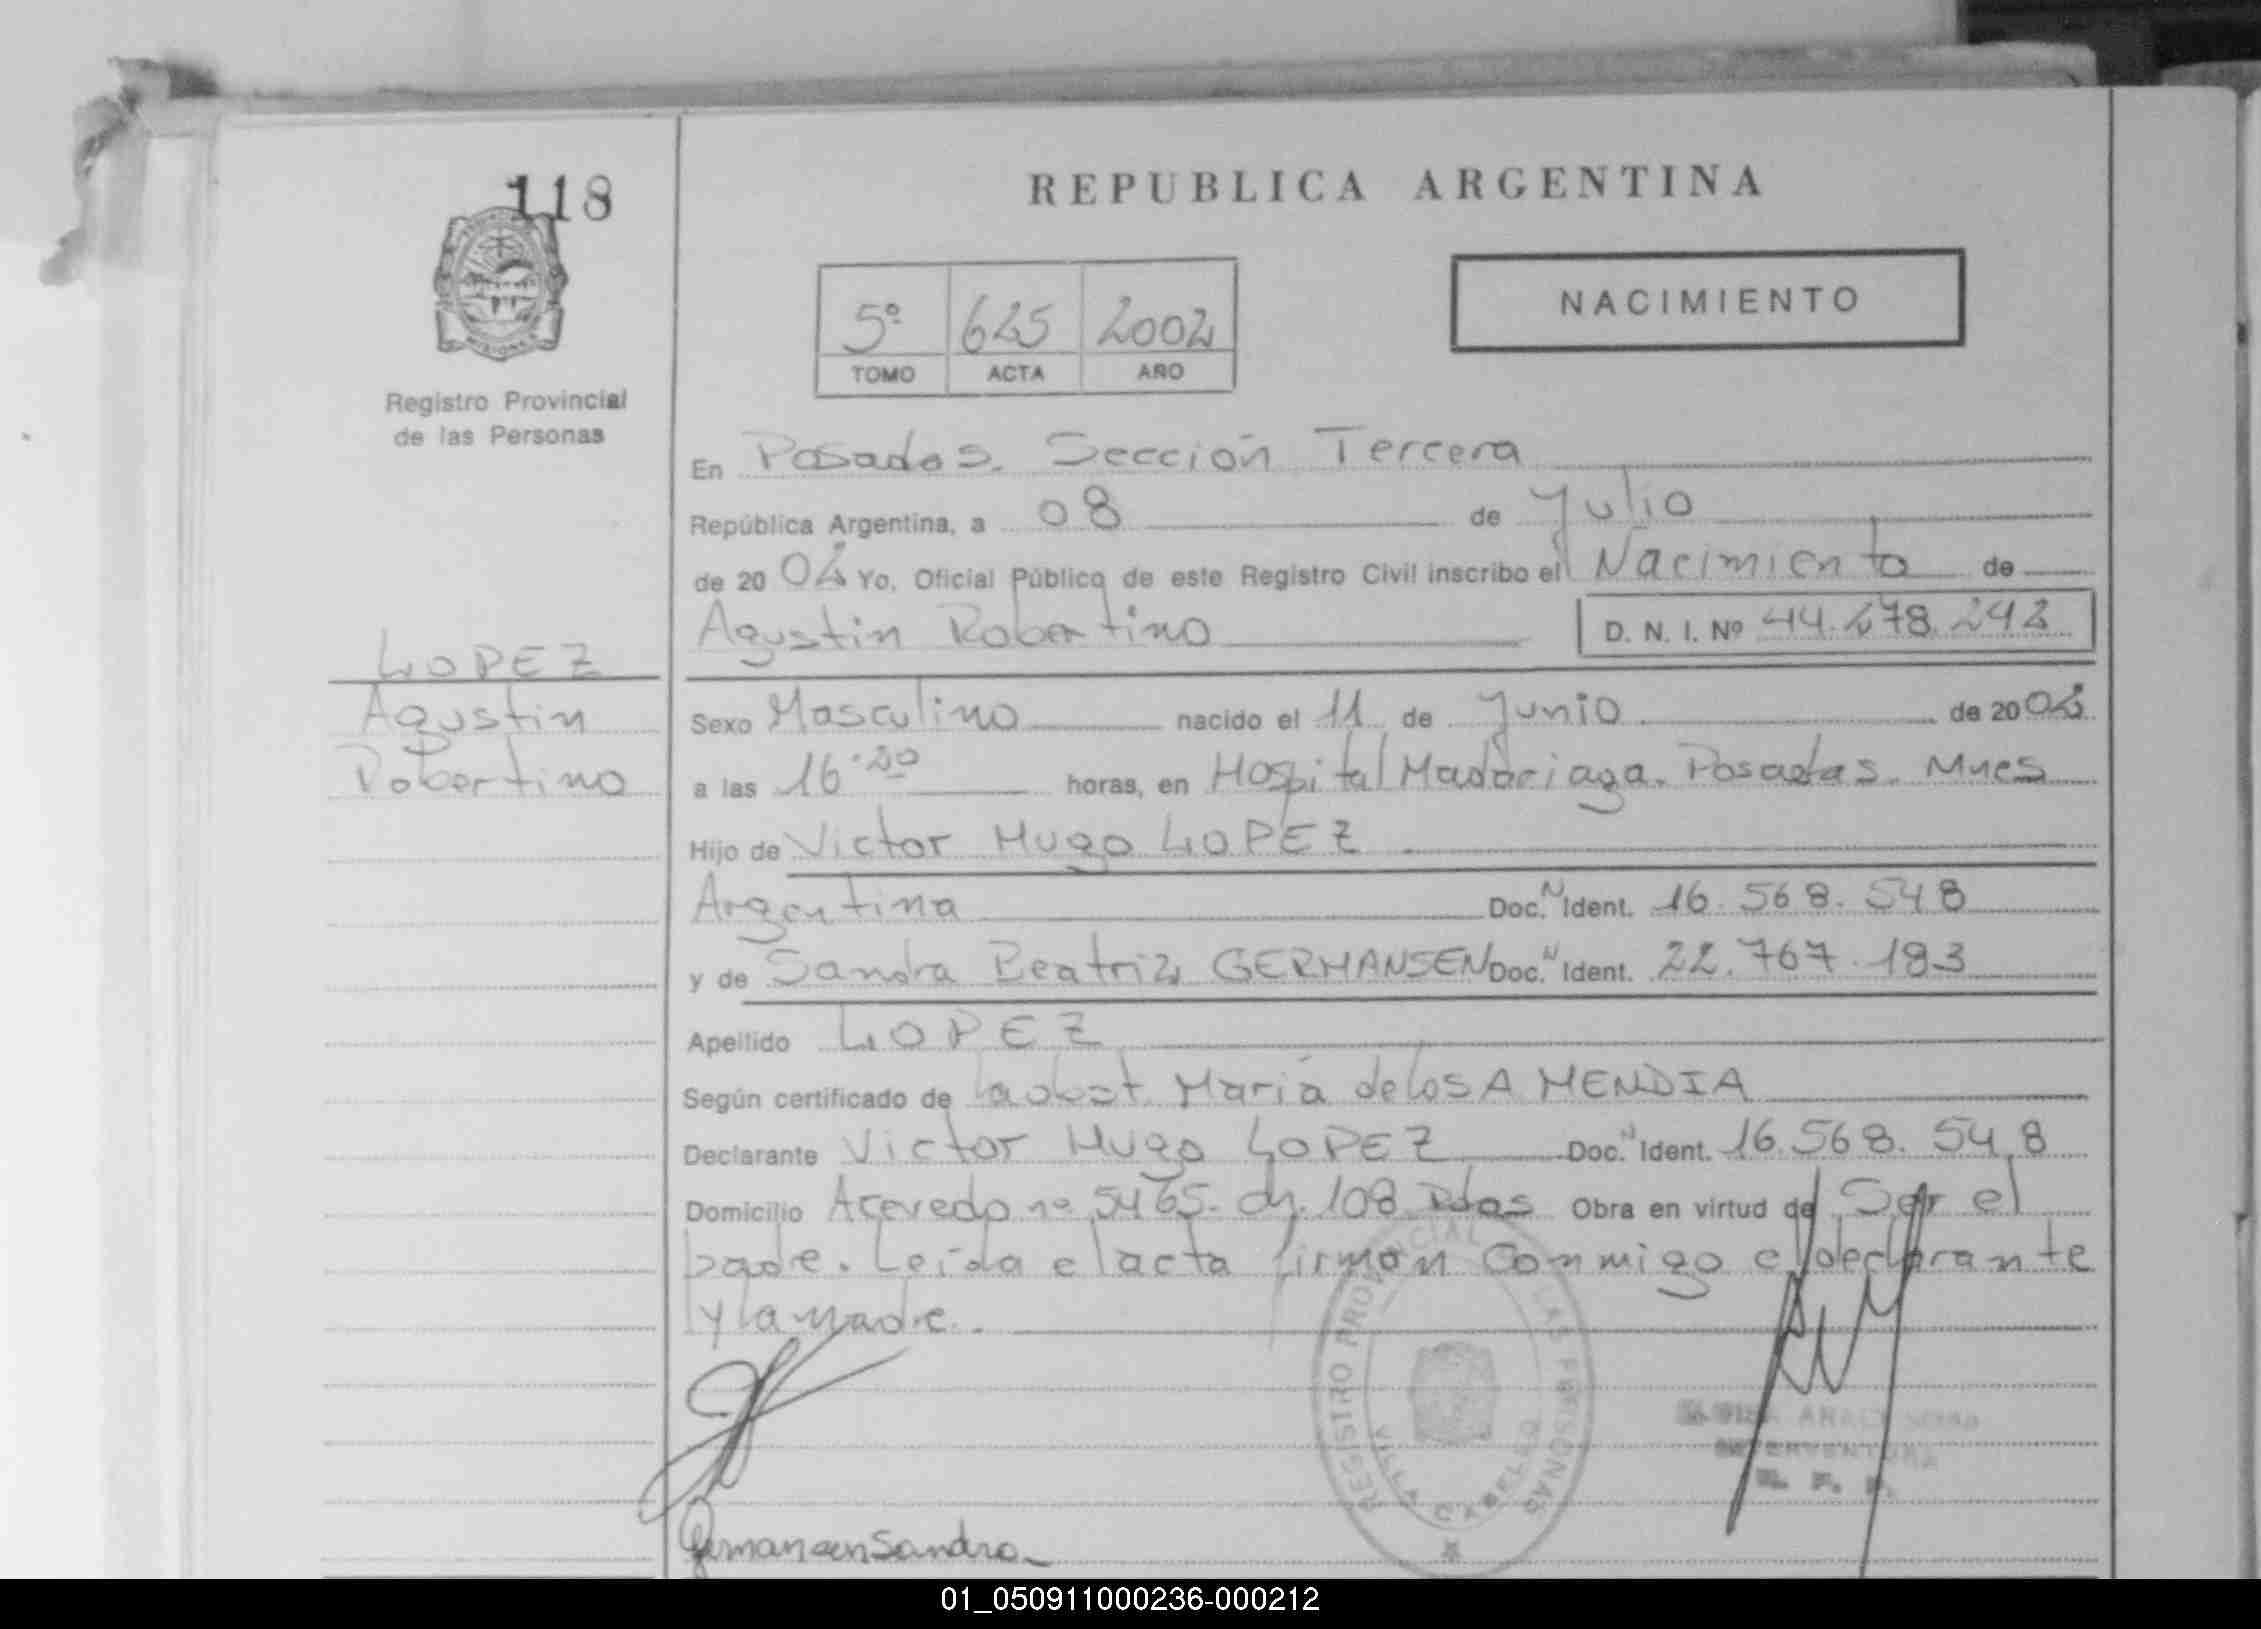 118
REPUBLICA ARGENTINA
NACIMIENTO
5º 625 2002
TOMO ACTA AÑO
MISIONES
Registro Provincial
de las Personas
En Posadas. Sección Tercera
República Argentina, a 08 de Julio
de 20 02 Yo, Oficial Público de este Registro Civil inscribo el Nacimiento de
Agustin Robertino D. N. I. Nº 44.278.242
LOPEZ
Agustin
Robertino
Sexo Masculino nacido el 11 de Junio de 2002
a las 16.20 horas, en Hospital Madariaga. Posadas. Mnes
Hijo de Victor Hugo LOPEZ
Argentina Doc. N Ident. 16.568.548
y de Sandra Beatriz GERMANSEN Doc. N Ident. 22.767.193
Apellido LOPEZ
Según certificado de la obst. Maria de los A MENDIA
Declarante Victor Hugo LOPEZ Doc. N Ident. 16.568.548
Domicilio Acevedo nº 5465. ch. 108 Pdas Obra en virtud de Ser el
padre. Leida el acta firman conmigo el declarante
y la madre.
REGISTRO PROVINCIAL LAS PERSONAS
VILLA CABELLO
INTERVENTORA
R. P. P.
Germansen Sandra
01_050911000236-000212